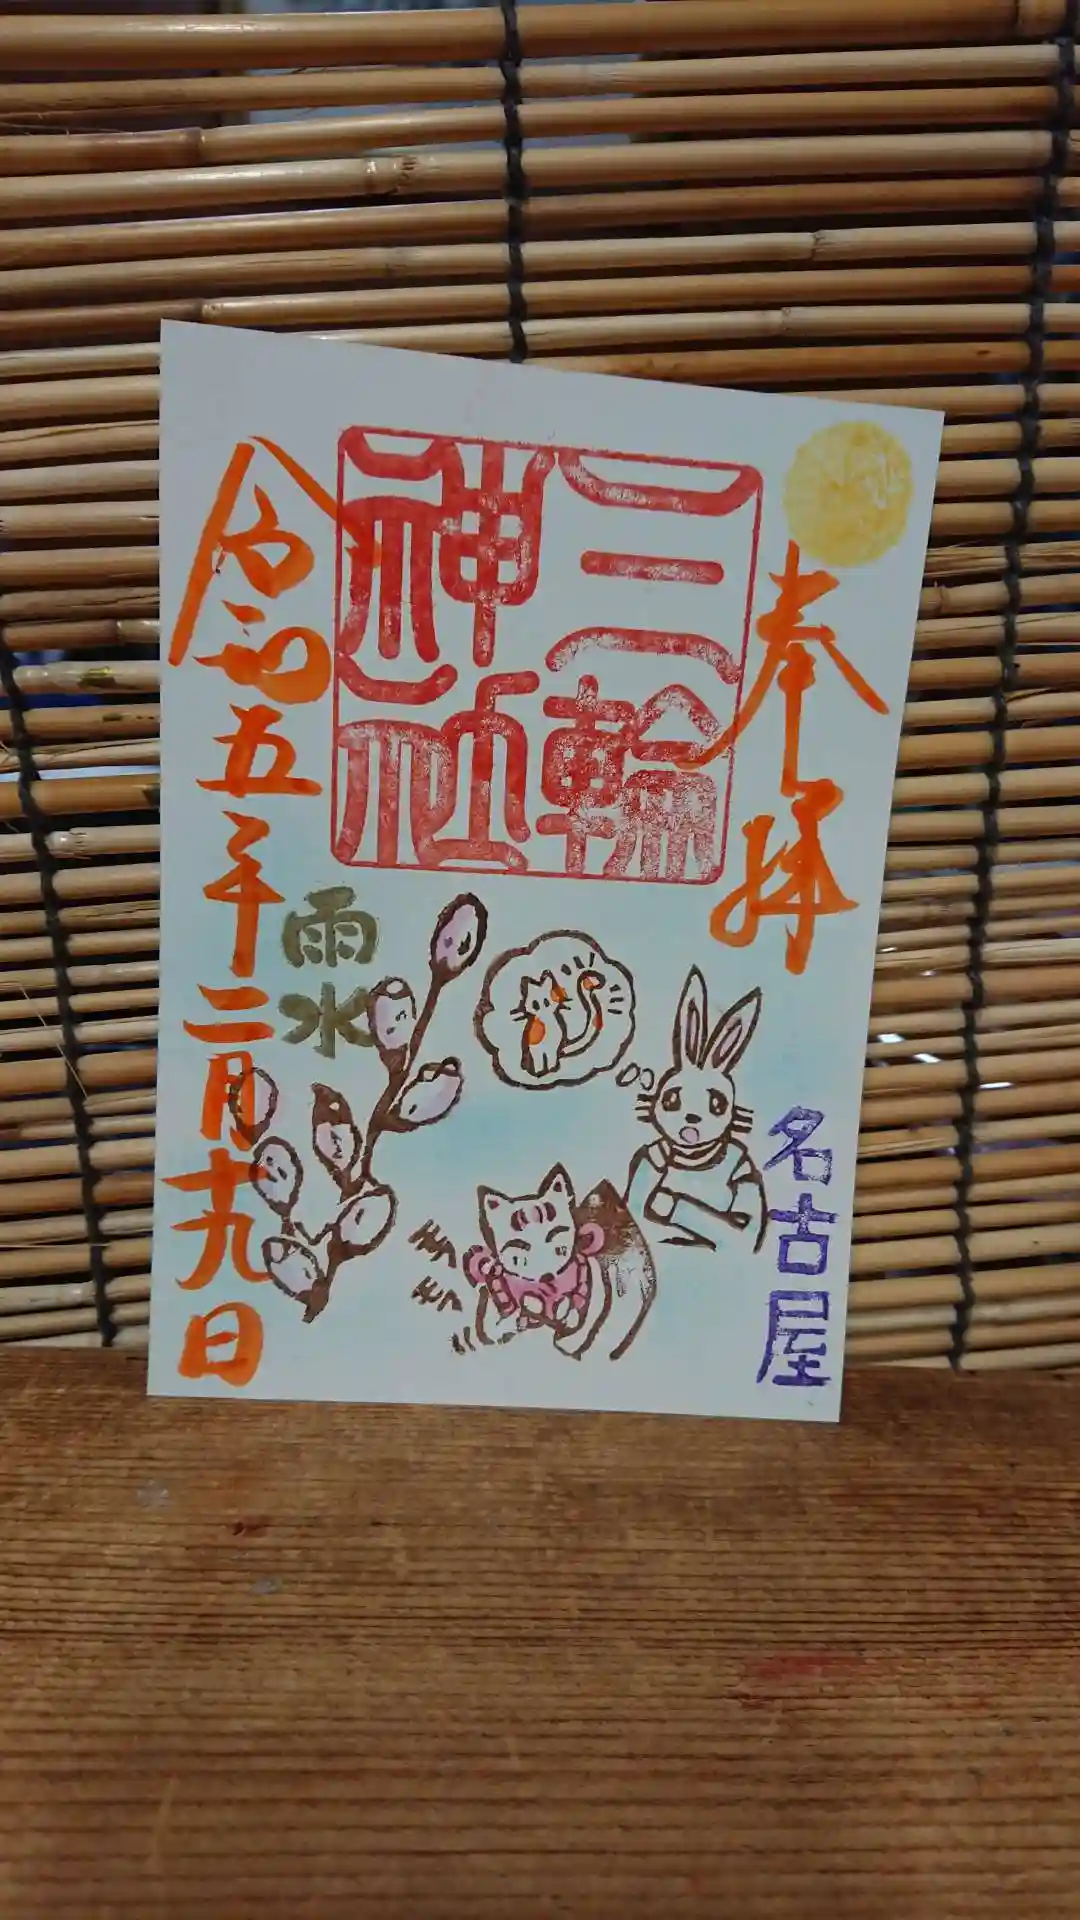 奉拝
三輪
神社
令和五年二月十九日
雨水
名古屋
モフ
モフ